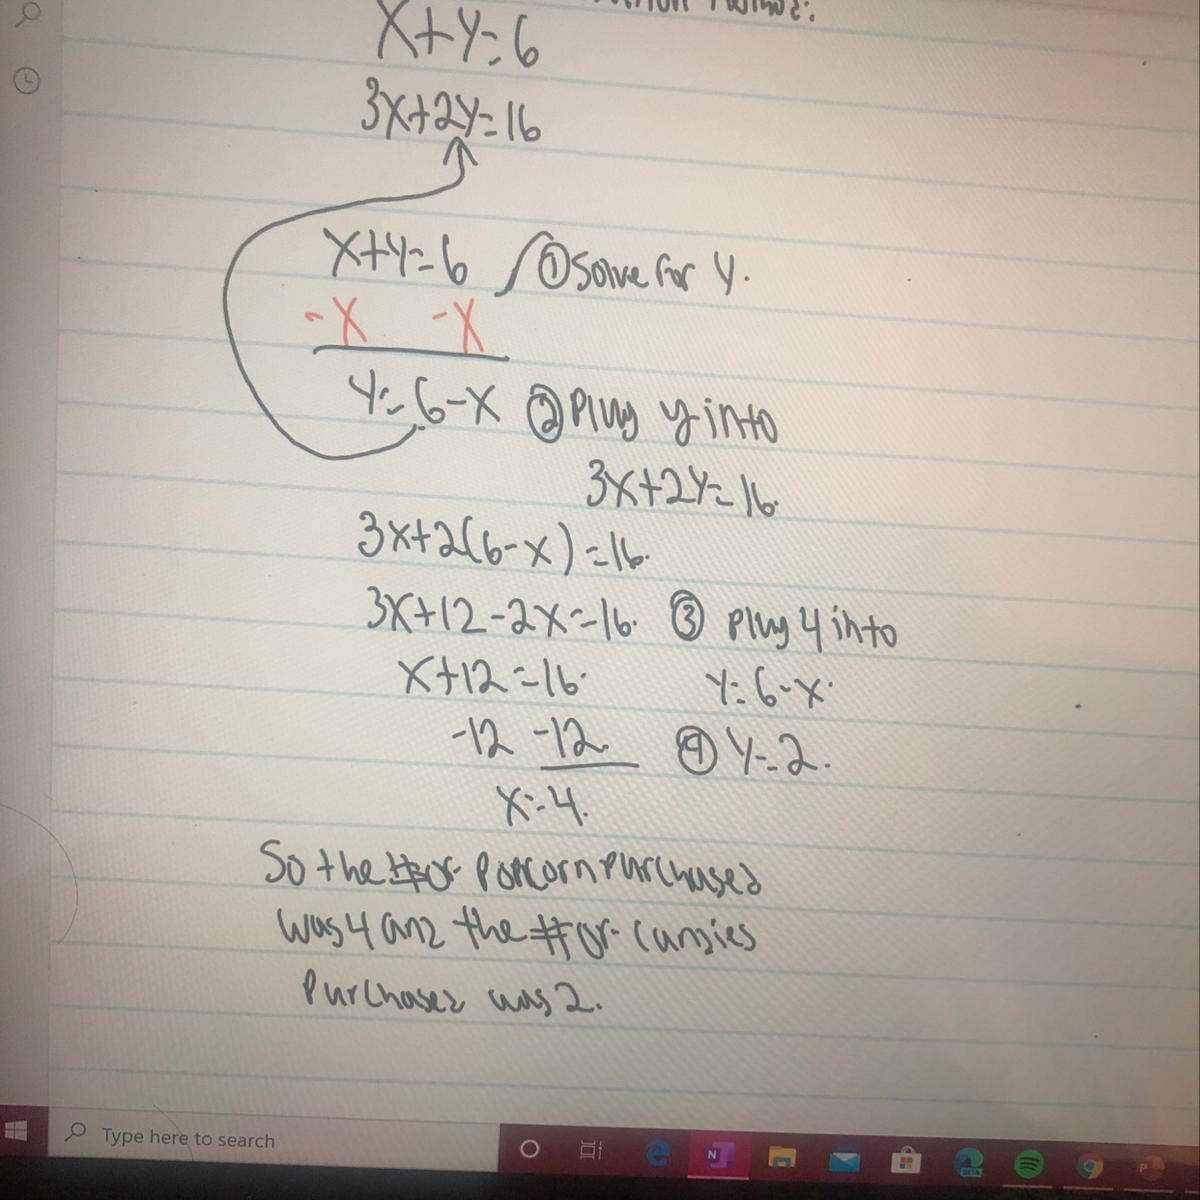 X+Y=6
3X+2Y=16
X+Y=6 ① Solve for Y.
-X -X
Y=6-X ② Plug y into
3X+2Y=16.
3X+2(6-X)=16.
3X+12-2X=16. ③ Plug 4 into
X+12=16. Y=6-X.
-12 -12. ④ Y=2.
X=4.
So the # of Popcorn Purchased
was 4 and the # of Candies
Purchased was 2.
Type here to search